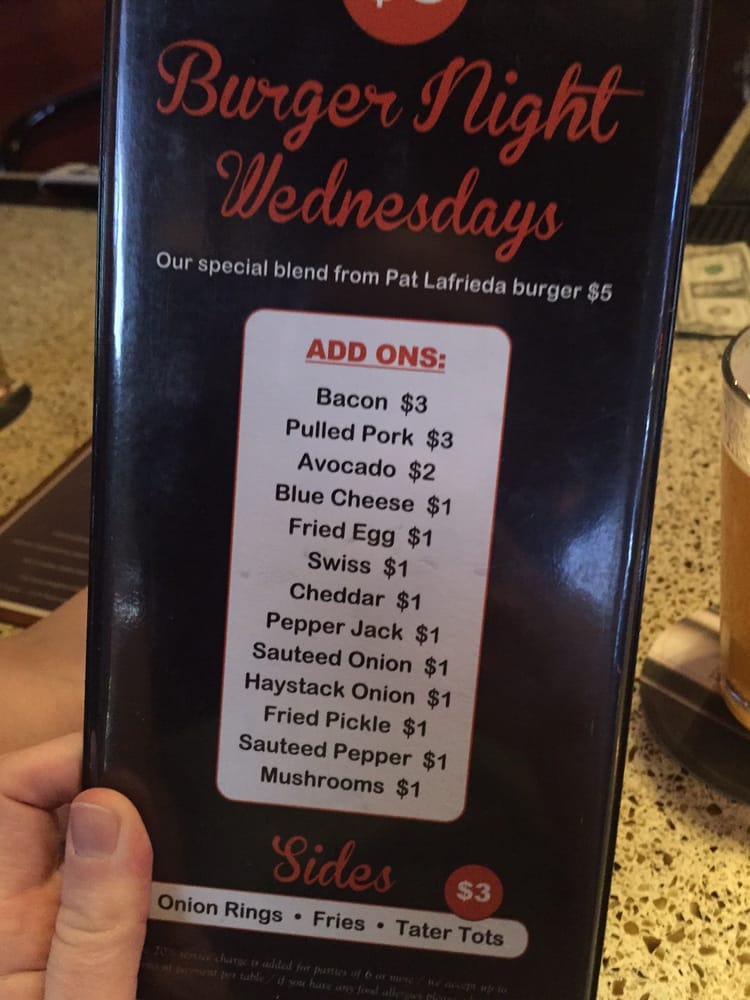 Burger Night
Wednesdays
Our special blend from Pat Lafrieda burger $5
ADD ONS:
Bacon $3
Pulled Pork $3
Avocado $2
Blue Cheese $1
Fried Egg $1
Swiss $1
Cheddar $1
Pepper Jack $1
Sauteed Onion $1
Haystack Onion $1
Fried Pickle $1
Sauteed Pepper $1
Mushrooms $1
Sides $3
Onion Rings • Fries • Tater Tots
20% service charge is added for parties of 6 or more / we accept up to
of payment per table / if you have any food allergies please